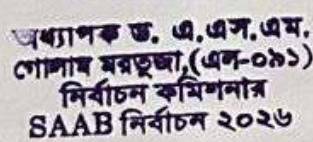 অধ্যাপক ড. এ.এস.এম.
গোলাম মরতুজা,(এন-০৯১)
নির্বাচন কমিশনার
SAAB নির্বাচন ২০২৬